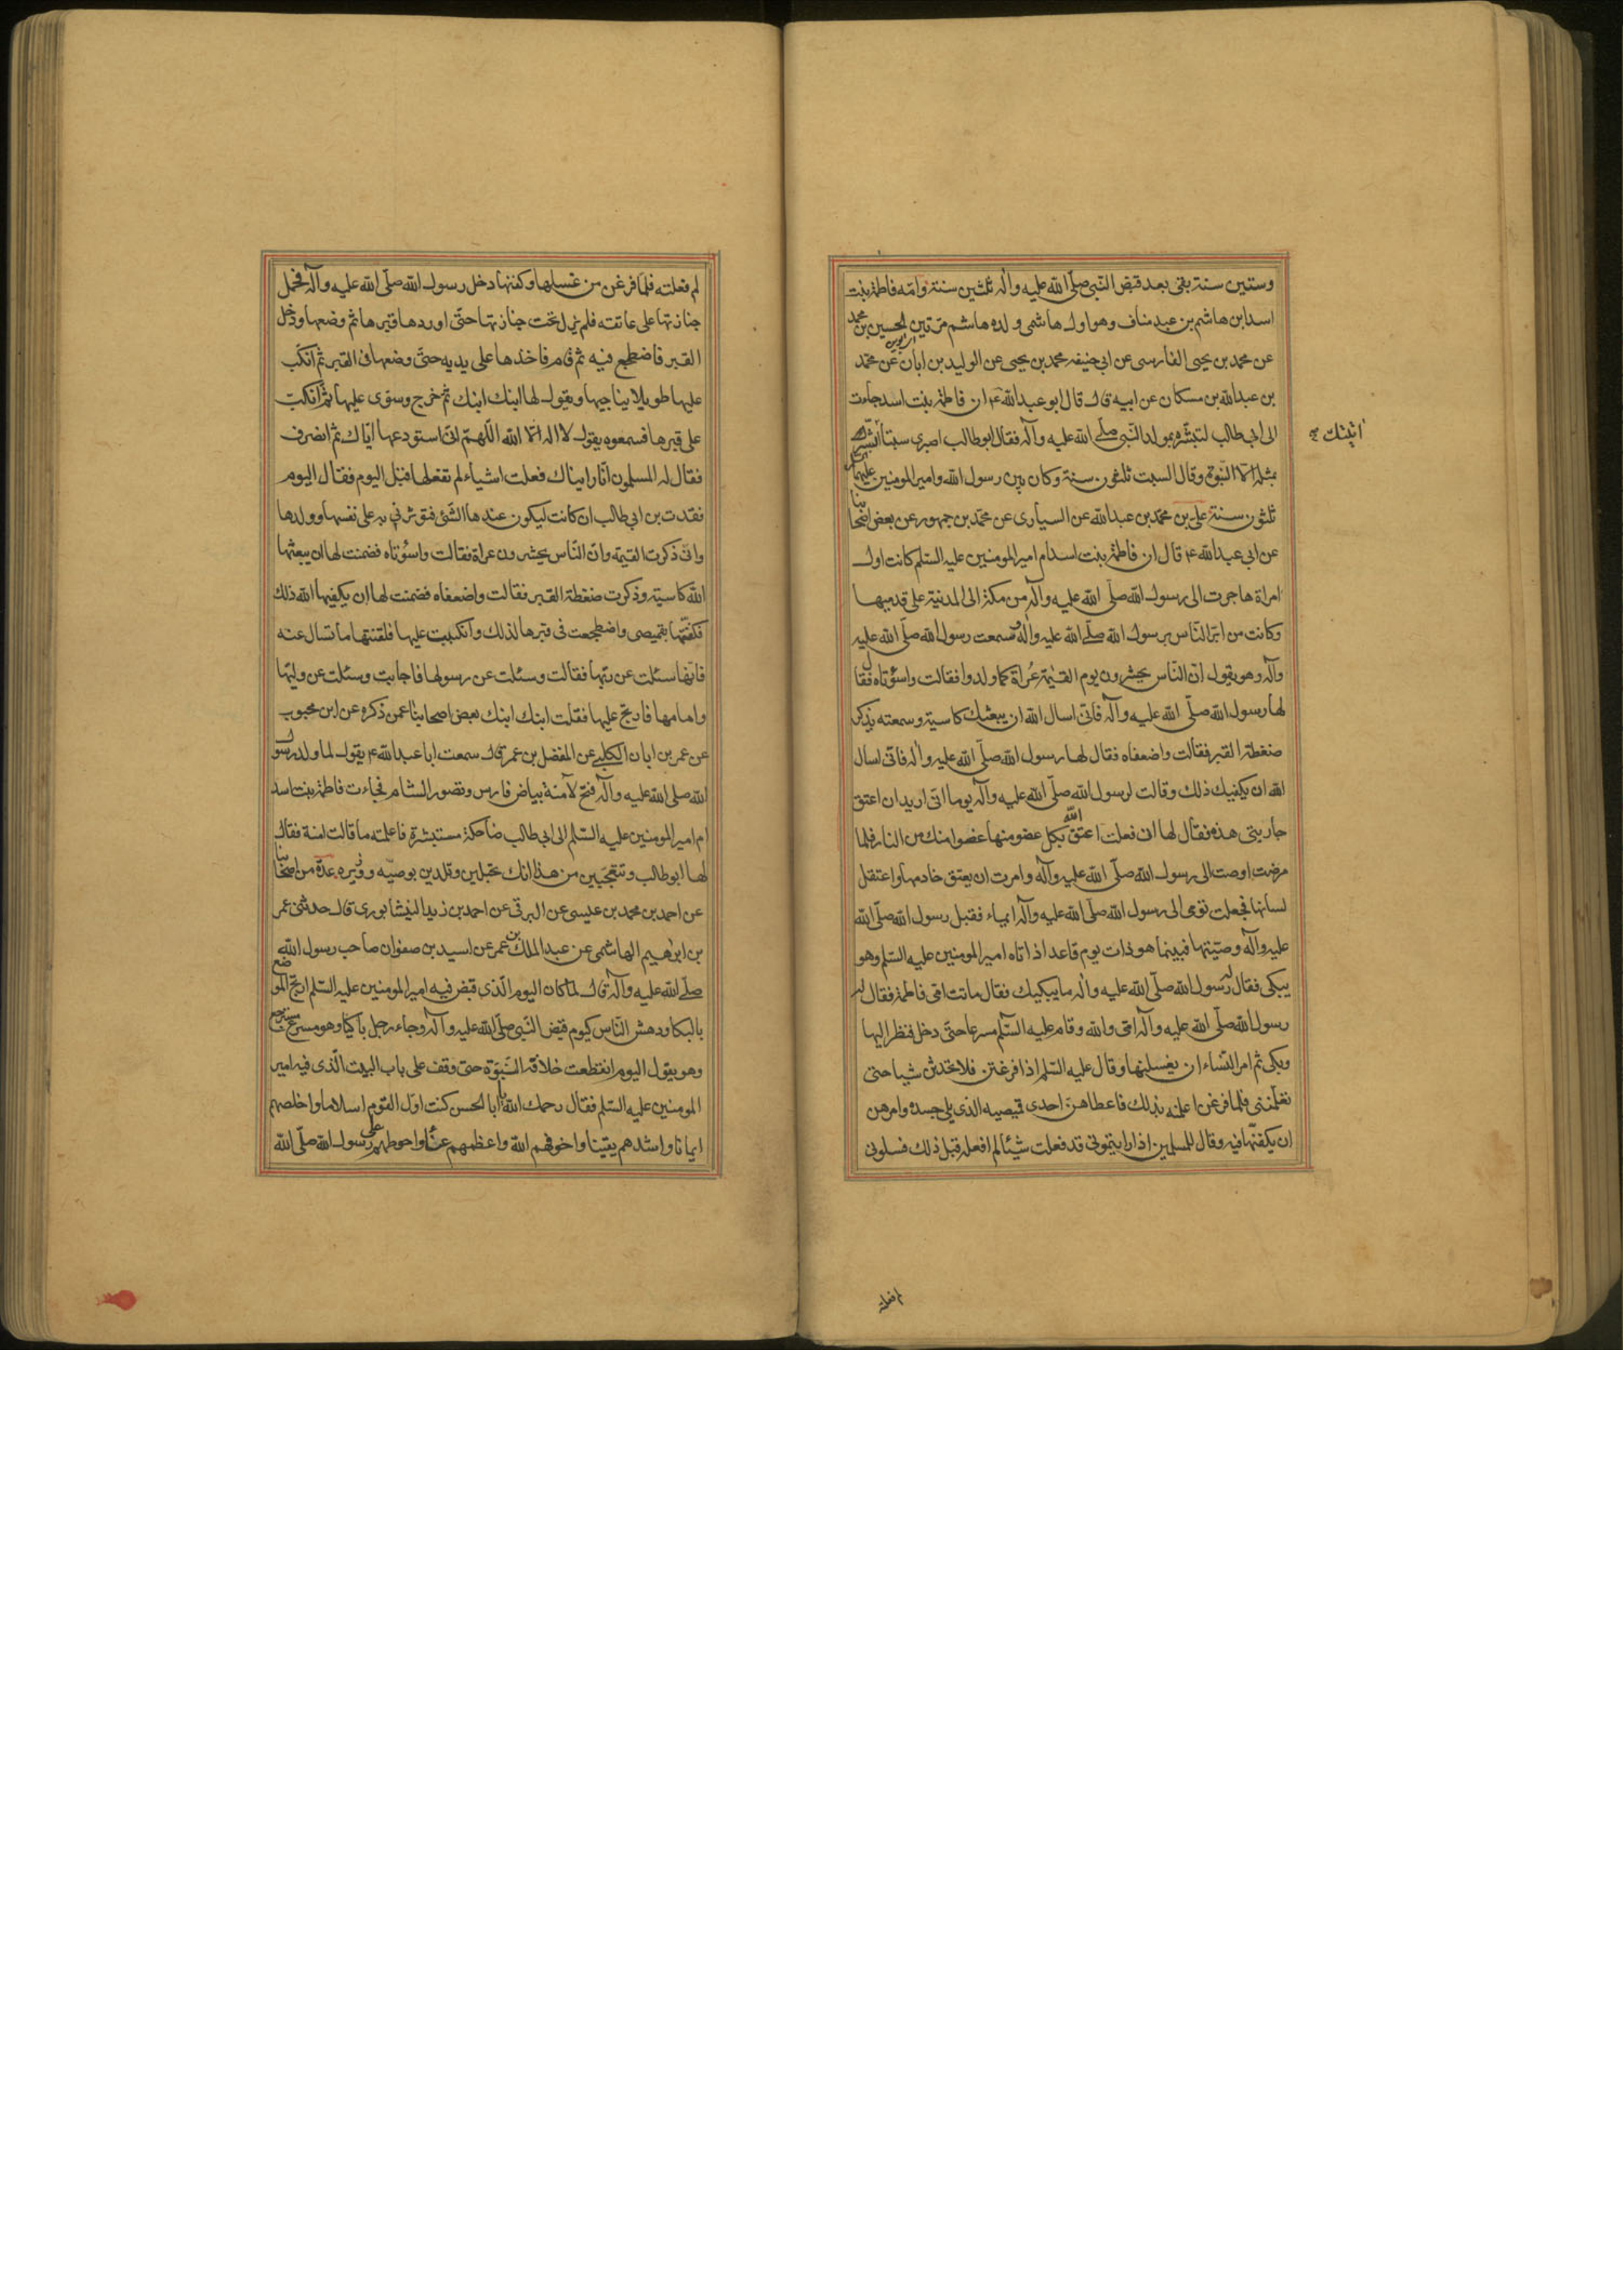 وستين سنة بقى بعد قبض النبى صلّى الله عليه وآله ثلثين سنة وامّه فاطمة بنت
اسد ابن هاشم بن عبد مناف وهو اول هاشمى ولده هاشم مرّتين الحسين بن محمد
عن محمد بن يحيى الفارسى عن ابى حنيفه محمد بن يحيى عن الوليد بن ابان عن محمّد
بن عبد الله بن مسكان عن ابيه قال قال ابو عبد الله ع ان فاطمة بنت اسد جاءت
الى ابى طالب لتبشّره بمولد النّبى صلّى الله عليه وآله فقال ابو طالب اصبرى سبتا ابشّرك
بمثله الّا النّبوة وقال السبت ثلثون سنة وكان بين رسول الله وامير المومنين عليهما
ثلثون سنة على بن محمّد بن عبد الله عن السيارى عن محمّد بن جمهور عن بعض اصحابنا
عن ابى عبد الله ع قال ان فاطمة بنت اسد ام امير المومنين عليه السّلم كانت اول
امراة هاجرت الى رسول الله صلّى الله عليه وآله من مكة الى المدينة على قدميها
وكانت من ابرّ النّاس برسول الله صلّى الله عليه وآله فسمعت رسول الله صلّى الله عليه
وآله وهو يقول انّ النّاس يحشرون يوم القيمة عُراة كما ولدوا فقالت واسؤتاه فقال
لها رسول الله صلّى الله عليه وآله فانّى اسال الله ان يبعثك كاسية وسمعته يذكر
ضغطة القبر فقالت واضعفاه فقال لها رسول الله صلّى الله عليه وآله فانّى اسال
الله ان يكفيك ذلك وقالت لرسول الله صلّى الله عليه وآله يوما انّى اريد ان اعتق
جاريتى هذه فقال لها ان فعلت اعتق الله بكل عضو منها عضوا منك من النار فلما
مرضت اوصت الى رسول الله صلّى الله عليه وآله وامرت ان يعتق خادمها واعتقل
لسانها فجعلت تومى الى رسول الله صلّى الله عليه وآله ايماء فقبل رسول الله صلّى الله
عليه وآله وصيّتها فبينما هو ذات يوم قاعد اذ اتاه امير المومنين عليه السّلم وهو
يبكى فقال له رسول الله صلّى الله عليه وآله ما يبكيك فقال ماتت امّى فاطمة فقال له
رسول الله صلّى الله عليه وآله امّى والله وقام عليه السّلم مسرعا حتّى دخل فنظر اليها
وبكى ثم امر النّساء ان يغسلنها وقال عليه السّلم اذا فرغتن فلا تحدثن شيا حتى
تعلّمننى فلما فرغن اعلمنه بذلك فاعطاهنّ احدى قميصيه الذى يلى جسده وامرهن
ان يكفنّها فيه وقال للمسلمين اذا رايتمونى قد فعلت شيئا لم افعله قبل ذلك فسلونى
لم فعلته
لم فعلته فلمّا فرغن من غسلها وكفنها دخل رسول الله صلّى الله عليه وآله فحمل
جنازتها على عاتقه فلم يزل تحت جنازتها حتّى اوردها قبرها ثم وضعها ودخل
القبر فاضطجع فيه ثم قام فاخذها على يديه حتّى وضعها فى القبر ثم انكبّ
عليها طويلا يناجيها ويقول لها ابنك ابنك ثم خرج وسوّى عليها ثم انكب
على قبرها فسمعوه يقول لا اله الّا الله اللّهمّ انّى استودعها ايّاك ثم انصرف
فقال له المسلمون انّا رايناك فعلت اشياء لم تفعلها قبل اليوم فقال اليوم
فقدت بر ابى طالب ان كانت ليكون عندها الشّئ فتوثرنى به على نفسها وولدها
وانّى ذكرت القيمة وانّ النّاس يحشرون عراة فقالت واسؤتاه فضمنت لها ان يبعثها
الله كاسية وذكرت ضغطة القبر فقالت واضعفاه فضمنت لها ان يكفيها الله ذلك
فكفّنتها بقميصى واضطجعت فى قبرها لذلك وانكببت عليها فلقنتها ما تسال عنه
فانّها سئلت عن ربّها فقالت وسئلت عن رسولها فاجابت وسئلت عن وليّها
وامامها فارتج عليها فقلت ابنك ابنك بعض اصحابنا عمن ذكره عن ابن محبوب
عن عمر بن ابان الكلبى عن المفضل بن عمر قال سمعت ابا عبد الله ع يقول لما ولد رسول
الله صلى الله عليه وآله فتح لآمنة بياض فارس وقصور الشام فجاءت فاطمة بنت اسد
ام امير المومنين عليه السّلم الى ابى طالب ضاحكة مستبشرة فاعلمته ما قالت امنة فقال
لها ابو طالب وتتعجّبين من هذا انك تحبلين وتلدين بوصيّه ووزيره عدّة من اصحابنا
عن احمد بن محمد بن عيسى عن البرقى عن احمد بن زيد النيشابورى قال حدثنى عمر
بن ابرهيم الهاشمى عن عبد الملك بن عمر عن اسيد بن صفوان صاحب رسول الله
صلّى الله عليه وآله قال لمّا كان اليوم الّذى قبض فيه امير المومنين عليه السّلم ارتج الموضع
بالبكا ودهش النّاس كيوم قبض النّبى صلّى الله عليه وآله وجاء رجل باكيا وهو مسرع مسترجع
وهو يقول اليوم انقطعت خلافة النّبوّة حتى وقف على باب البيت الّذى فيه امير
المومنين عليه السّلم فقال رحمك الله يا ابا الحسن كنت اوّل القوم اسلاما واخلصهم
ايمانا واشدهم يقينا واخوفهم الله واعظمهم عنًا واحوطهم على رسول الله صلّى الله